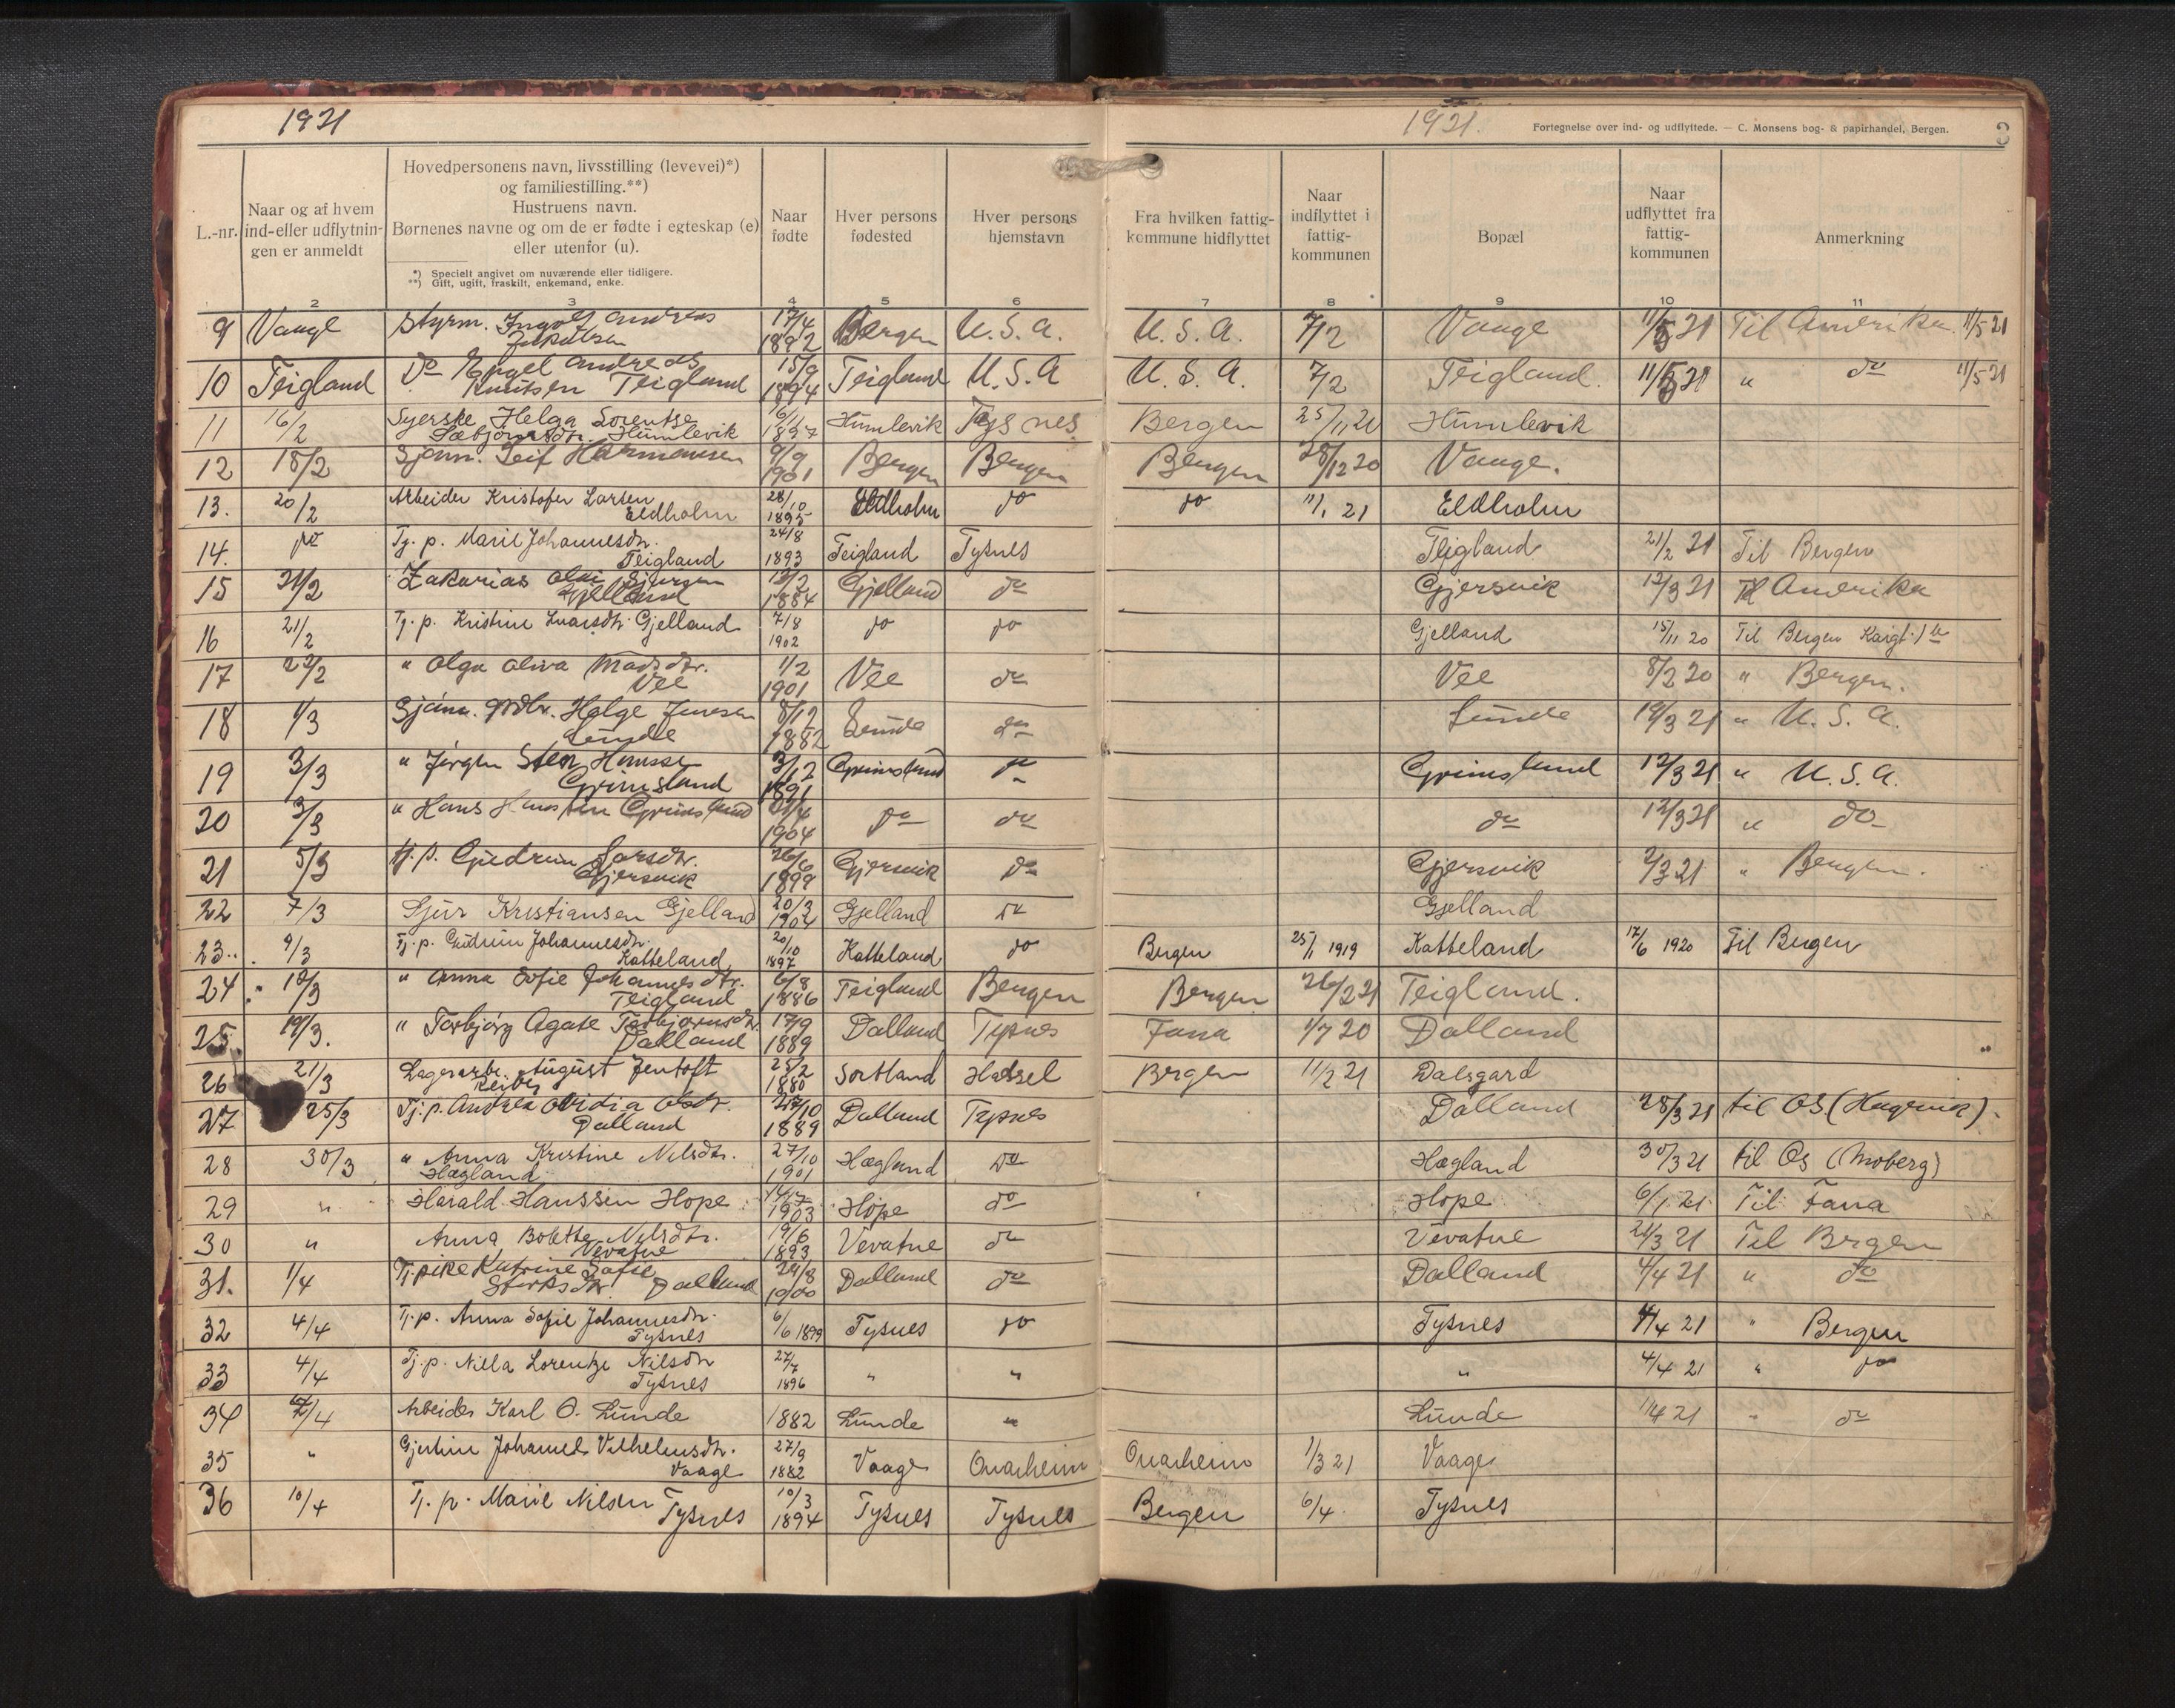 1921
1921.
Fortegnelse over ind- og udflyttede. — C. Monsens bog- & papirhandel, Bergen.
3
L.-nr.
Naar og af hvem ind-eller udflytnin-gen er anmeldt
Hovedpersonens navn, livsstilling (levevei)*) og familiestilling.**) Hustruens navn. Børnenes navne og om de er fødte i egteskap (e) eller utenfor (u).
*) Specielt angivet om nuværende eller tidligere.
**) Gift, ugift, fraskilt, enkemand, enke.
Naar fødte
Hver persons fødested
Hver persons hjemstavn
Fra hvilken fattig-kommune hidflyttet
Naar indflyttet i fattig-kommunen
Bopæl
Naar udflyttet fra fattig-kommunen
Anmerkning
2 3 4 5 6 7 8 9 10 11
9 Vaage Styrm. Ingolf Andreas Jakobsen 17/4 1892 Bergen U.S.A. U.S.A. 7/2 Vaage 11/5 21 Til Amerika 11/5 21
10 Teigland Do Engel Andreas Knutsen Teigland 15/9 1894 Teigland U.S.A U.S.A. 7/2 Teigland. 11/5 21 " do 11/5 21
11 16/2 Syerske Helga Sorentse Sæbjørnsdtr. Humlevik 16/11 1897 Humlevik Tysnes Bergen 25/11 20 Humlevik
12 18/2 Sjøm. Leif Hermansen 9/9 1901 Bergen Bergen Bergen 28/12 20 Vaage.
13. 20/2 Arbeider Kristofer Larsen Eldholm 28/10 1895 Eldholm do do 11/1 21 Eldholm
14. do Tj. p. Marie Johannesdtr. Teigland 24/8 1893 Teigland Tysnes Teigland 21/2 21 Til Bergen
15 21/2 Zakarias Olai Sjursen Gjelland 12/2 1884 Gjelland do Gjersvik 12/3 21 Til Amerika
16 21/2 Tj. p. Kristine Ivarsdtr Gjelland 7/8 1902 do do Gjelland 15/11 20 Til Bergen
17 22/2 " Olga Oliva Madsdtr. Vee 1/2 1901 Vee do Vee 8/2 20 " Bergen.
18 1/3 Sjøm. Helge Jensen Lunde 8/12 1882 Lunde do Lunde 19/3 21 " U.S.A.
19 3/3 " Jørgen Sten Hanssen Grimsland 3/12 1891 Grimsland do Grimsland 12/3 21 " U.S.A.
20 3/3 " Hans Grimsland 1904 do do do 12/3 21 " do
21 5/3 Tj. p. Gudrun Larsdtr. Gjersvik 26/6 1899 Gjersvik do Gjersvik 2/3 21 " Bergen.
22 7/3 Sjur Kristiansen Gjelland 20/3 1904 Gjelland do Gjelland
23. 9/3 Tj. p. Gudrun Johannesdtr. Katteland 20/10 1897 Katteland do Bergen 25/1 1919 Katteland 17/6 1920 Til Bergen
24 12/3 " Anna Sofie Johannesdtr. Teigland 6/8 1886 Teigland Bergen Bergen 26/2 21 Teigland.
25. 19/3. " Torbjørg Agate Torbjørnsdtr. Dalland 17/9 1889 Dalland Tysnes Fana 1/7 20 Dalland "
26 21/3 Lagerarb. August Jentoft 25/2 1880 Sortland Hassel Bergen 11/2 21 Dalsgard
27 25/3 Tj. p. Andrea Ovidia Olsdtr. Dalland 27/10 1889 Dalland Tysnes Dalland 28/3 21 til Os (Hagevik).
28 30/3 " Anna Kristine Nilsdtr. Hægland 27/10 1901 Hægland do Hægland 30/3 21 til Os (Moberg)
29 " Harald Hanssen Hope 1903 Hope do Hope 6/1 21 Til Fana
30 " Anna Bolette Nilsdtr. Vevatne 19/6 1893 Vevatne do Vevatne 21/3 21 Til Bergen
31. 1/4 Tj. pike Katrine Sofie Dalland 24/8 1900 Dalland do Dalland 4/4 21 " do
32 4/4 Tj. p. Anna Sofie Johannesdtr. Tysnes 6/6 1899 Tysnes do Tysnes 4/4 21 " Bergen
33 4/4 Tj. p. Nilla Lorentze Nilsdtr Tysnes 27/7 1896 " " " 4/4 21 " do
34 4/4 Arbeider Karl O. Lunde 1882 Lunde " Lunde 1/4 21 " do
35 " Gjertine Johanne Vilhelmsdtr. Vaage 27/9 1882 Vaage Onarheim Onarheim 1/3 21 Vaage
36 10/4 Tj. p. Marie Nilsen Tysnes 10/3 1894 Tysnes Tysnes Bergen 6/4 Tysnes